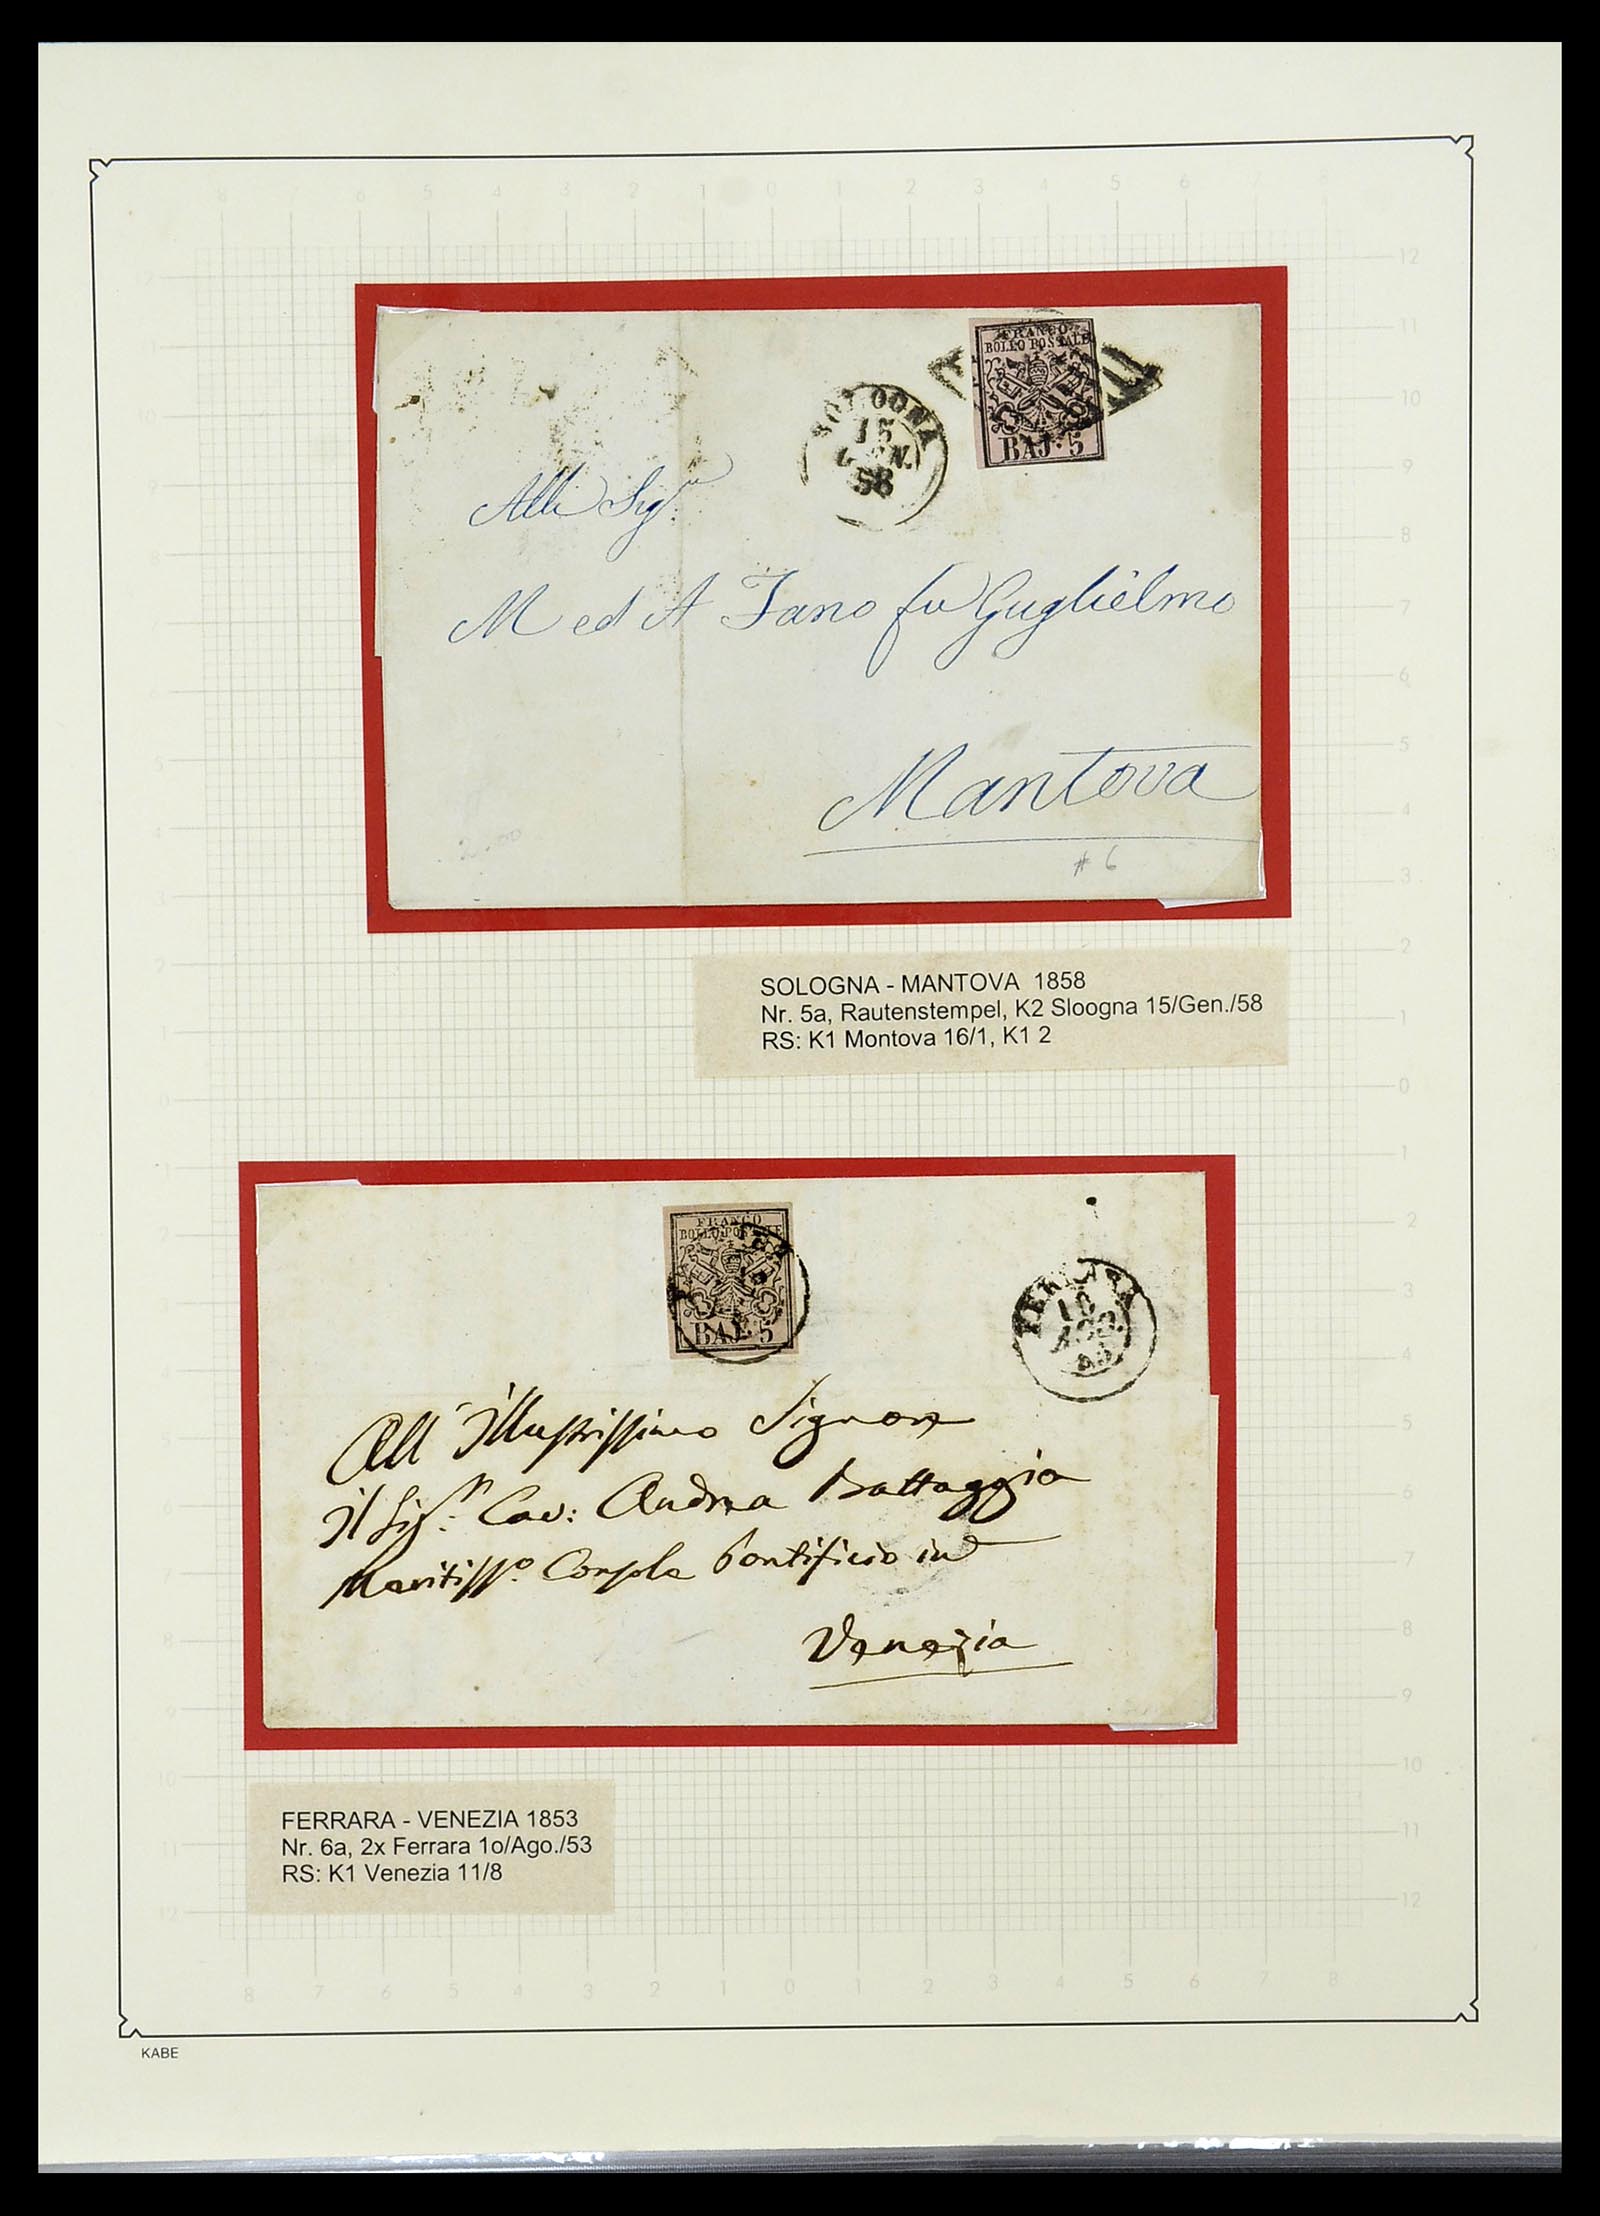 FRANCO
BOLLO POSTALE
BAJ. 5
BOLOGNA
15
GEN.
58
Alli Sigri
M ed A Fano fu Guglielmo
Mantova
# 6
SOLOGNA - MANTOVA 1858
Nr. 5a, Rautenstempel, K2 Sloogna 15/Gen./58
RS: K1 Montova 16/1, K1 2
FRANCO
BOLLO POSTALE
BAJ. 5
FERRARA
10
AGO.
53
All'Illustrissimo Signore
Il Sigr. Cav: Andrea Battaggia
Meritisso. Console Pontificio in
Venezia
FERRARA - VENEZIA 1853
Nr. 6a, 2x Ferrara 1o/Ago./53
RS: K1 Venezia 11/8
KABE